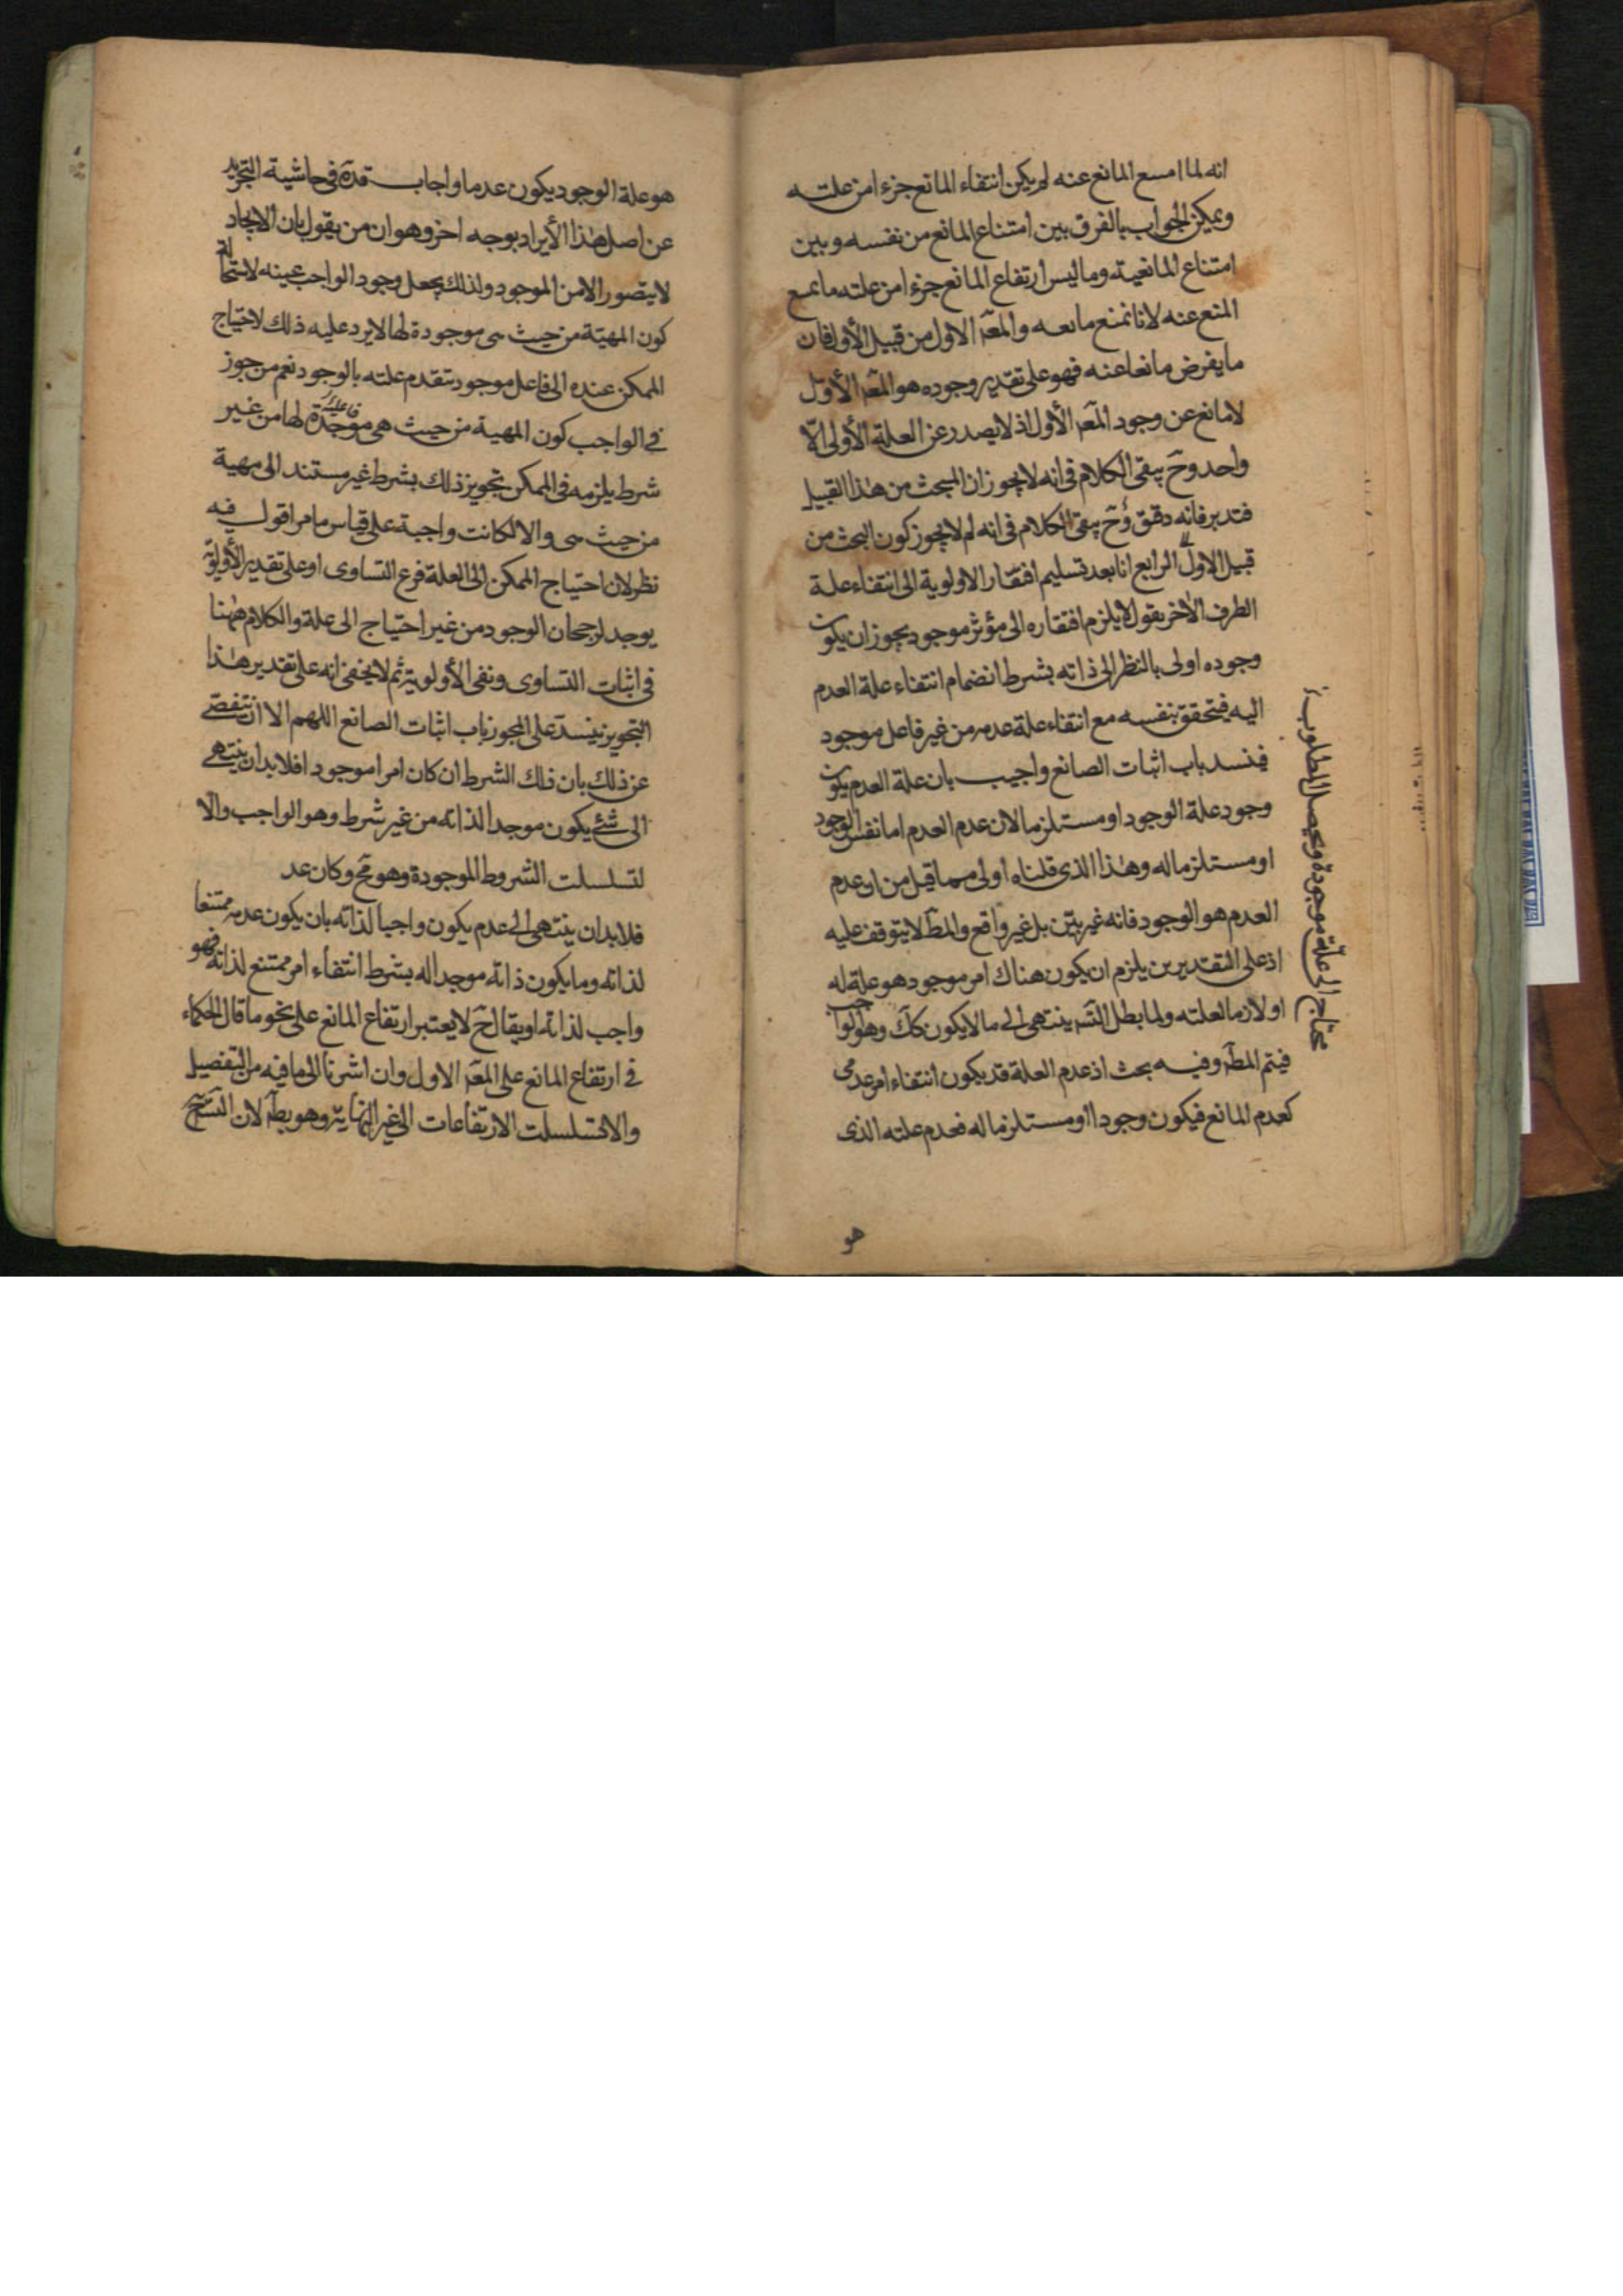 انه لما امسع المانع عنه لم يكن انتفاء المانع جزء امن علته
ويمكن الجواب بالفرق بين امتناع المانع من نفسه وبين
امتناع المانعية وما ليس ارتفاع المانع جزء امن علته ما يمسع
المنع عنه لانا نمنع مانعه والمعه الاول من قبيل الأول فان
ما يفرض مانعا عنه فهو على تقدير وجوده هو المعه الأول
لا مانع عن وجود المعه الأول اذ لا يصدر عن العلة الأولى الّا
واحد وحَ يبقى الكلام فى انه لا يجوز ان المبحث من هذا القبيل
فتدبر فانه دقيق وحَ يبقى الكلام فى انه لم لا يجوز كون البحث من
قبيل الاول الرابع انا بعد تسليم افتقار الاولوية الى انتفاء علة
الطرف الاخر نقول لا يلزم افتقاره الى مؤثر موجود يجوز ان يكون
وجوده اولى بالنظر الى ذاته بشرط انضمام انتفاء علة العدم
اليه فيتحقق بنفسه مع انتفاء علة عدمه من غير فاعل موجود
فينسد باب اثبات الصانع واجيب بان علة العدم يكون
وجود علة الوجود او مستلزما لان عدم العدم اما نفس الوجود
او مستلزما له وهذا الذى قلناه اولى مما قيل من ان عدم
العدم هو الوجود فانه غير بيّن بل غير واقع والمط لا يتوقف عليه
اذ على التقديرين يلزم ان يكون هناك امر موجود هو علة له
او لازما لعلته ولما بطل التسه ينتهى الى ما لا يكون كك وهو الواجب
فيتم المطه وفيه بحث اذ عدم العلة قد يكون انتفاء امر عدمى
كعدم المانع فيكون وجودا او مستلزما له فعدم علته الذى
هو
محتاج الى علّة موجودة ويحصل المطلوب
هو علة الوجود يكون عدما واجاب قده فى حاشية التجريد
عن اصل هذا الأيراد بوجه اخر وهو ان من يقول بان الايجاد
لا يتصور الا من الموجود ولذلك يجعل وجود الواجب عينه لاستحالة
كون المهيّة من حيث هى موجودة لها لا يرد عليه ذلك لاحتياج
الممكن عنده الى فاعل موجود يتقدم علته بالوجود نعم من جوز
فى الواجب كون المهية من حيث هى موجدة لها من غير
شرط يلزمه فى الممكن تجويز ذلك بشرط غير مستند الى مهية
من حيث هى والا لكانت واجبة على قياس ما مر اقول فيه
نظر لان احتياج الممكن الى العلة فرع التساوى او على تقدير الأولوية
يوجد لرجحان الوجود من غير احتياج الى علة والكلام ههنا
فى اثبات التساوى ونفى الأولوية ثم لا يخفى انه على تقدير هذا
التجويز ينسد على المجوز باب اثبات الصانع اللهم الا ان يتفصّى
عن ذلك بان ذلك الشرط ان كان امرا موجودا فلا بد ان ينتهى
الى شئ يكون موجدا لذاته من غير شرط وهو الواجب والّا
لتسلسلت الشروط الموجودة وهو مح وكان عد
فلا بد ان ينتهى الى عدم يكون واجبا لذاته بان يكون عدمه ممتنعا
لذاته وما يكون ذاته موجدا له بشرط انتفاء امر ممتنع لذاته فهو
واجب لذاته او يقال حَ لا يعتبر ارتفاع المانع على نحو ما قال الحكماء
فى ارتفاع المانع على المعه الاول وان اشرنا الى ما فيه من التفصيل
والا لتسلسلت الارتفاعات الى غير النهاية وهو بطه لان